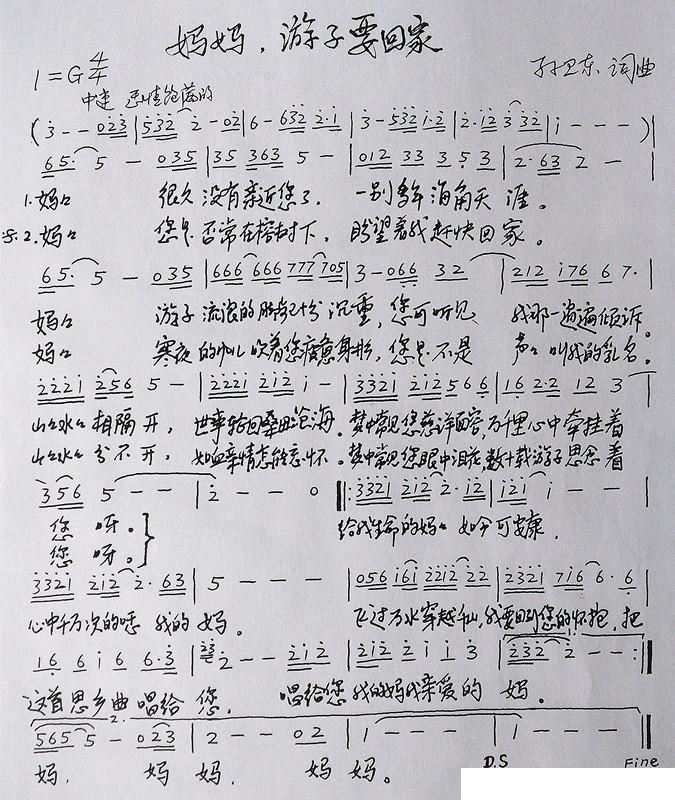 妈妈，游子要回家
1=G 4/4
孙卫东 词曲
中速
(3--023|532 2-02|6-632 2·1|3-532 1·2|2·12 3 32|1---)|
65· 5-035|35 363 5-|012 33 3 5 3|2·63 2-|
1.妈妈 很久没有亲近您了. 一别多年海角天涯。
2.妈妈 您是否常在榕树下. 盼望着我赶快回家。
65· 5-035|666 666 777 705|3-066 32|212 176 6 7·|
妈妈 游子流浪的 沉重, 您可听见 我那一遍遍倾诉。
妈妈 寒夜的 吹着您疲惫身形, 您是不是 声声叫我的乳名。
2221 256 5-|2221 212 1-|3321 212 5 6 6|16 2·2 12 3|
山山水水相隔开, 世事轮回桑田沧海. 梦中常见您慈详面容, 万千里心中牵挂着
山山水水分不开, 如血亲情怎能忘怀. 梦中常见您眼中泪花, 数十载游子思念着
356 5--|2--0‖:3321 212 2·12|121 1--|
您呀。 给我生命的妈妈 如今可安康.
您呀。
3321 212 2·63|5---|056 161 2212 22|2321 716 6·6|
心中千万次的呼 我的妈。 飞过万水穿越千山, 我要回到您的怀抱, 把
16 6 1 6 6·3|2--212|212 2 1 1 3|232 2--:‖
这首思乡曲唱给您. 唱给您我的妈我亲爱的妈。
2.
565 5-023|2--02|1---|1---‖
妈. 妈妈. 妈妈。
D.S Fine